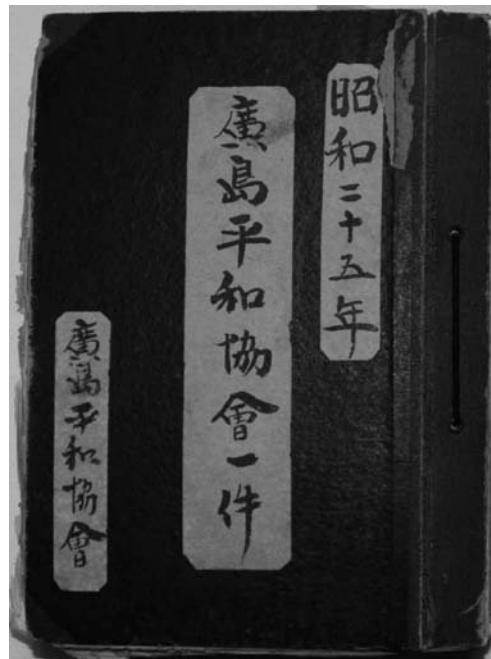 昭和二十五年
廣島平和協會一件
廣島平和協會